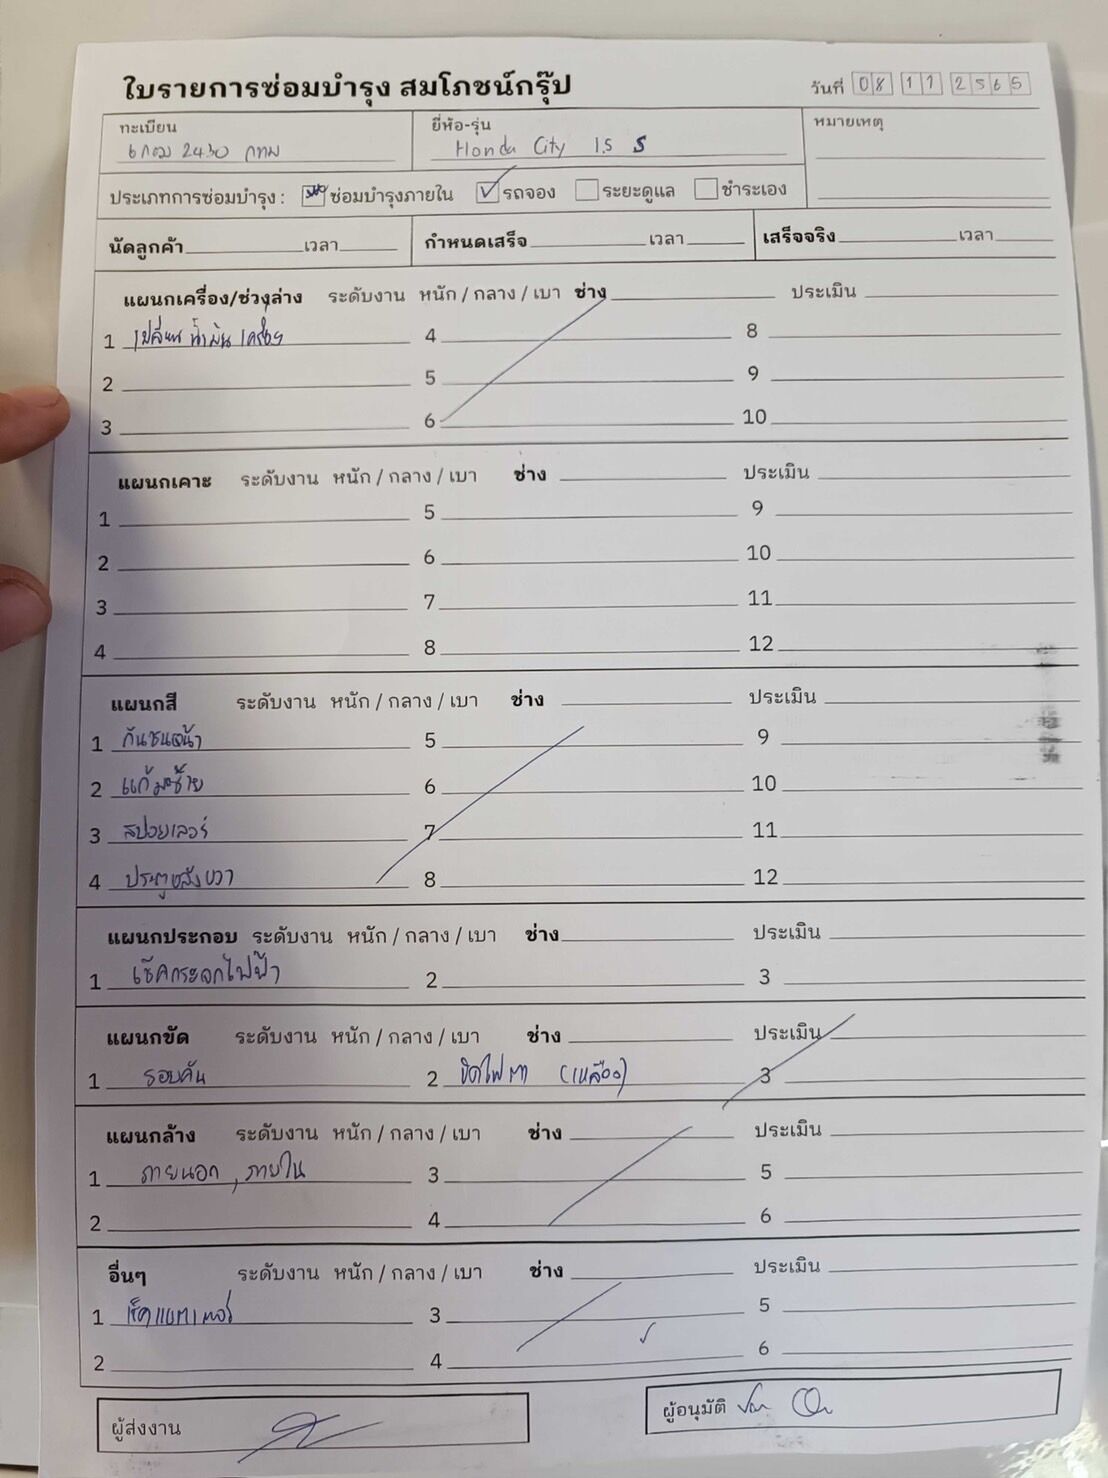 ใบรายการซ่อมบำรุง สมโภชน์กรุ๊ป
วันที่ 08 11 2565
ทะเบียน
2430 กทม
ยี่ห้อ-รุ่น
Honda City 1.5 S
หมายเหตุ
ประเภทการซ่อมบำรุง : ซ่อมบำรุงภายใน ✓ รถจอง ระยะดูแล ชำระเอง
นัดลูกค้า เวลา กำหนดเสร็จ เวลา เสร็จจริง เวลา
แผนกเครื่อง/ช่วงล่าง ระดับงาน หนัก / กลาง / เบา ช่าง ประเมิน
1 เปลี่ยนน้ำมันเครื่อง 4 8
2 5 9
3 6 10
แผนกเคาะ ระดับงาน หนัก / กลาง / เบา ช่าง ประเมิน
1 5 9
2 6 10
3 7 11
4 8 12
แผนกสี ระดับงาน หนัก / กลาง / เบา ช่าง ประเมิน
1 กันชนหน้า 5 9
2 แก้มซ้าย 6 10
3 สปอยเลอร์ 7 11
4 ประตูหลังขวา 8 12
แผนกประกอบ ระดับงาน หนัก / กลาง / เบา ช่าง ประเมิน
1 เช็คกระจกไฟฟ้า 2 3
แผนกขัด ระดับงาน หนัก / กลาง / เบา ช่าง ประเมิน
1 รอบคัน 2 ขัดไฟตา (เหลือง) 3
แผนกล้าง ระดับงาน หนัก / กลาง / เบา ช่าง ประเมิน
1 ภายนอก , ภายใน 3 5
2 4 6
อื่นๆ ระดับงาน หนัก / กลาง / เบา ช่าง ประเมิน
1 เช็คแบตเตอรี่ 3 5
2 4 ✓ 6
ผู้ส่งงาน
ผู้อนุมัติ